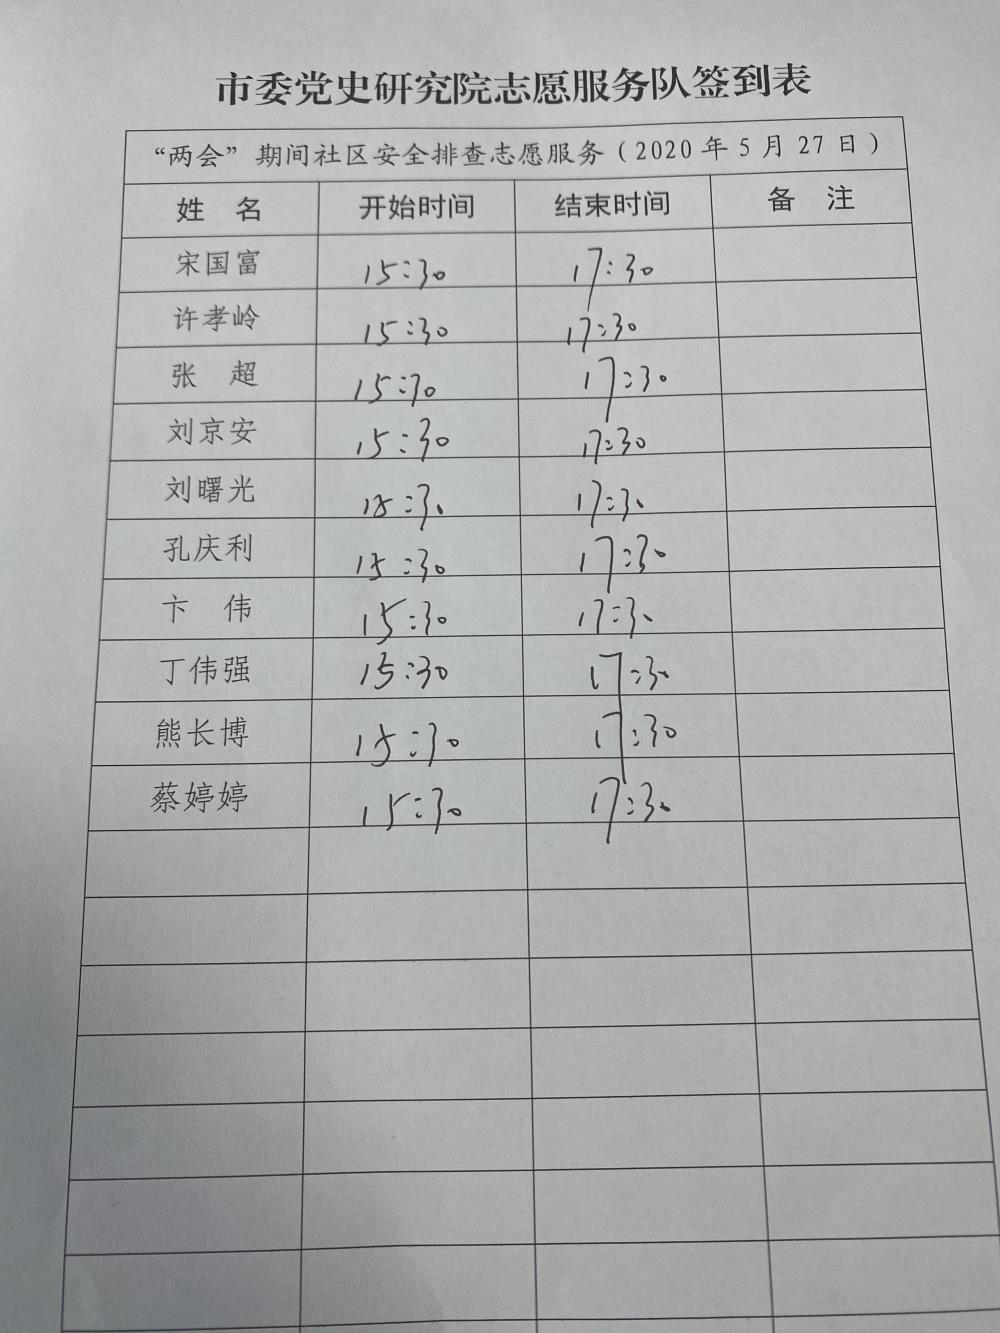 市委党史研究院志愿服务队签到表
“两会”期间社区安全排查志愿服务（2020年5月27日）
姓 名 开始时间 结束时间 备 注
宋国富 15:30 17:30
许孝岭 15:30 17:30
张 超 15:30 17:30
刘京安 15:30 17:30
刘曙光 15:30 17:30
孔庆利 15:30 17:30
卞 伟 15:30 17:30
丁伟强 15:30 17:30
熊长博 15:30 17:30
蔡婷婷 15:30 17:30